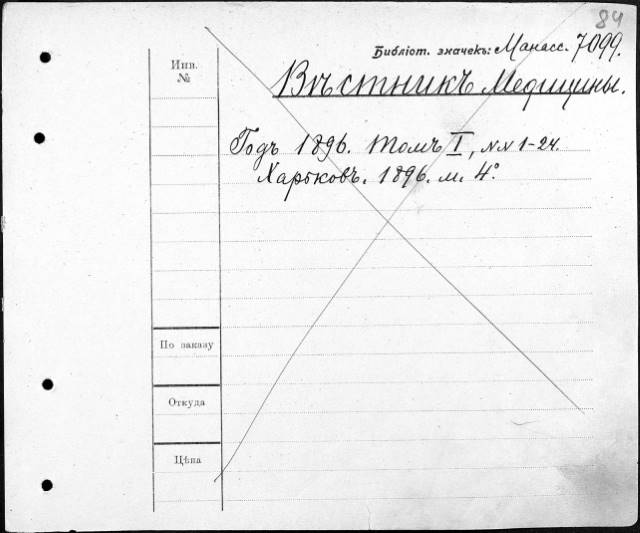 84
Библіот. значекъ: Манасс. 7099.
Инв.
№
Вѣстникъ Медицины.
Годъ 1896. Томъ I, №№ 1-24.
Харьковъ. 1896. м. 4°.
По заказу
Откуда
Цѣна